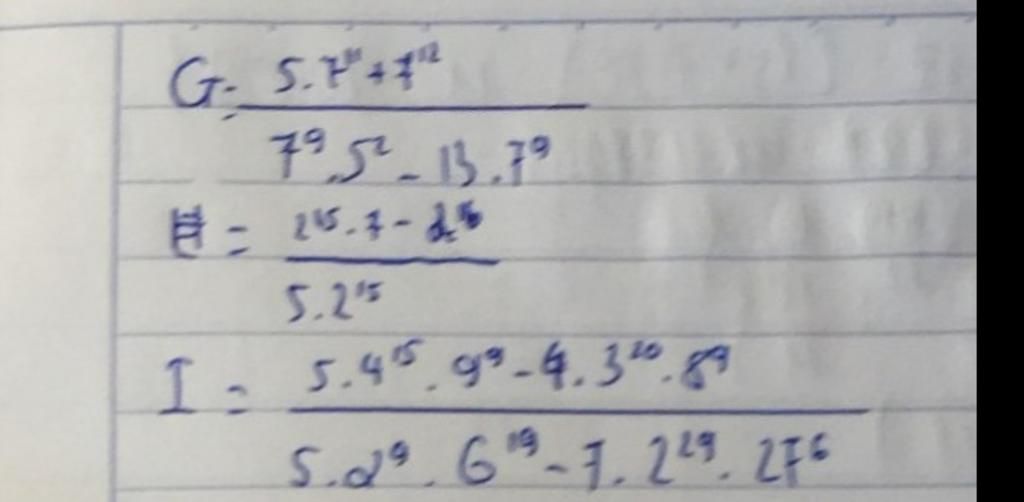 G = 5.7¹¹+7¹²
7⁹.5² - 13.7⁹
H = 2¹⁵.7 - 2¹⁶
5.2¹⁵
I = 5.4¹⁵.9⁹-4.3²⁰.8⁹
5.2⁹.6¹⁹-7.2²⁹.27⁶